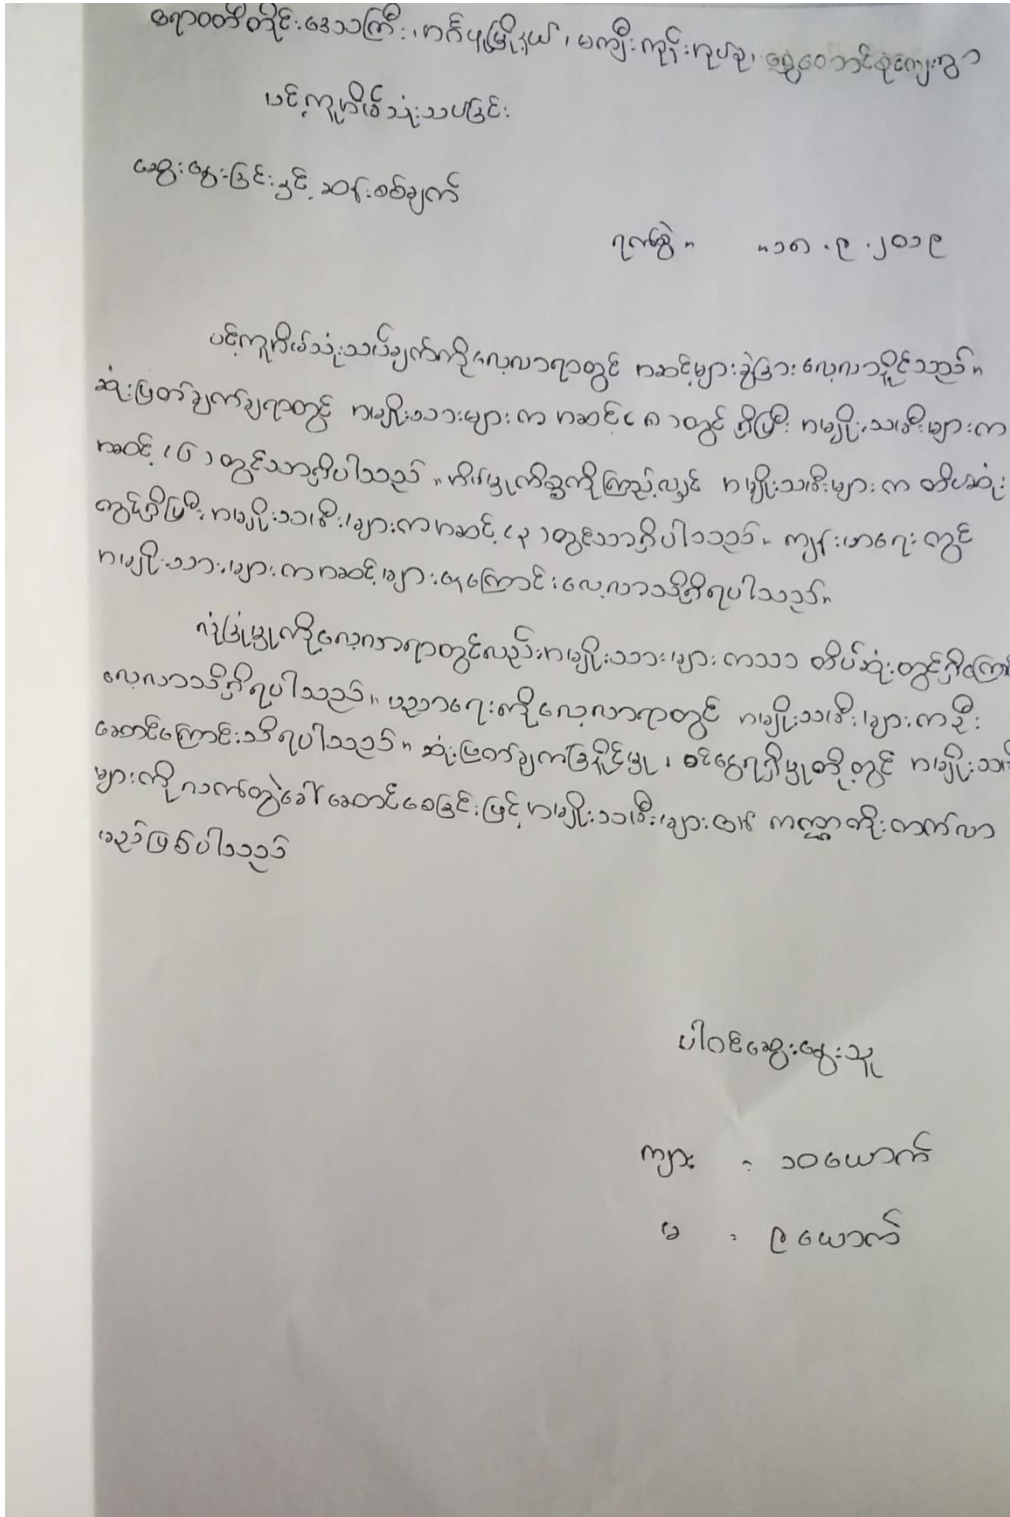 ဧရာဝတီတိုင်းဒေသကြီး၊ အင်္ဂပူမြို့နယ်၊ မကျီးကုန်းအုပ်စု၊
ပင့်ကူအိမ်သုံးသပ်ခြင်း
ဆွေးနွေးခြင်းနှင့် ဆန်းစစ်ချက်
ရက်စွဲ ။ ။ ၁၈.၉.၂၀၁၉
ပင့်ကူအိမ်သုံးသပ်ချက်ကိုလေ့လာရာတွင် အဆင့်များခွဲခြားလေ့လာနိုင်သည်။
ဆုံးဖြတ်ချက်ချရာတွင် အမျိုးသားများက အဆင့်(၈)တွင်ရှိပြီး အမျိုးသမီးများက
အဆင့်(၆)တွင်သာရှိပါသည်။ အိမ်မှုကိစ္စကိုကြည့်လျှင် အမျိုးသမီးများက ထိပ်ဆုံး
တွင်ရှိပြီး အမျိုးသမီးများကအဆင့်(၃)တွင်သာရှိပါသည်။ ကျန်းမာရေးတွင်
အမျိုးသားများကအဆင့်များနေကြောင်းလေ့လာသိရှိရပါသည်။
လုံခြုံမှုကိုလေ့လာရာတွင်လည်းအမျိုးသားများကသာ ထိပ်ဆုံးတွင်ရှိကြော
လေ့လာသိရှိရပါသည်။ ပညာရေးကိုလေ့လာရာတွင် အမျိုးသမီးများကဦး
ဆောင်ကြောင်းသိရပါသည်။ ဆုံးဖြတ်ချက်ချနိုင်မှု၊ ဝင်ငွေရရှိမှုတို့တွင် အမျိုးသမီ
များကိုလက်တွဲခေါ်ဆောင်စေခြင်းဖြင့်အမျိုးသမီးများ၏ ကဏ္ဍတိုးတက်လာ
မည်ဖြစ်ပါသည်
ပါဝင်ဆွေးနွေးသူ
ကျား = ၁၀ယောက်
မ = ၉ယောက်